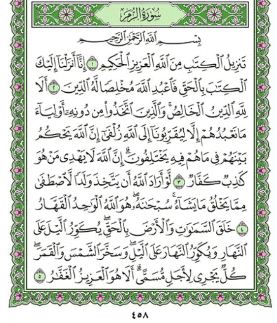 سُورَةُ الزُّمَرِ
بِسْمِ اللَّهِ الرَّحْمَٰنِ الرَّحِيمِ
تَنزِيلُ الْكِتَابِ مِنَ اللَّهِ الْعَزِيزِ الْحَكِيمِ ١ إِنَّا أَنزَلْنَا إِلَيْكَ
الْكِتَابَ بِالْحَقِّ فَاعْبُدِ اللَّهَ مُخْلِصًا لَّهُ الدِّينَ ٢ أَلَا
لِلَّهِ الدِّينُ الْخَالِصُ وَالَّذِينَ اتَّخَذُوا مِن دُونِهِ أَوْلِيَاءَ
مَا نَعْبُدُهُمْ إِلَّا لِيُقَرِّبُونَا إِلَى اللَّهِ زُلْفَىٰ إِنَّ اللَّهَ يَحْكُمُ
بَيْنَهُمْ فِي مَا هُمْ فِيهِ يَخْتَلِفُونَ إِنَّ اللَّهَ لَا يَهْدِي مَنْ هُوَ
كَاذِبٌ كَفَّارٌ ٣ لَّوْ أَرَادَ اللَّهُ أَن يَتَّخِذَ وَلَدًا لَّاصْطَفَىٰ
مِمَّا يَخْلُقُ مَا يَشَاءُ سُبْحَانَهُ هُوَ اللَّهُ الْوَاحِدُ الْقَهَّارُ
٤ خَلَقَ السَّمَاوَاتِ وَالْأَرْضَ بِالْحَقِّ يُكَوِّرُ اللَّيْلَ عَلَى
النَّهَارِ وَيُكَوِّرُ النَّهَارَ عَلَى اللَّيْلِ وَسَخَّرَ الشَّمْسَ وَالْقَمَرَ
كُلٌّ يَجْرِي لِأَجَلٍ مُّسَمًّى أَلَا هُوَ الْعَزِيزُ الْغَفَّارُ ٥
٤٥٨